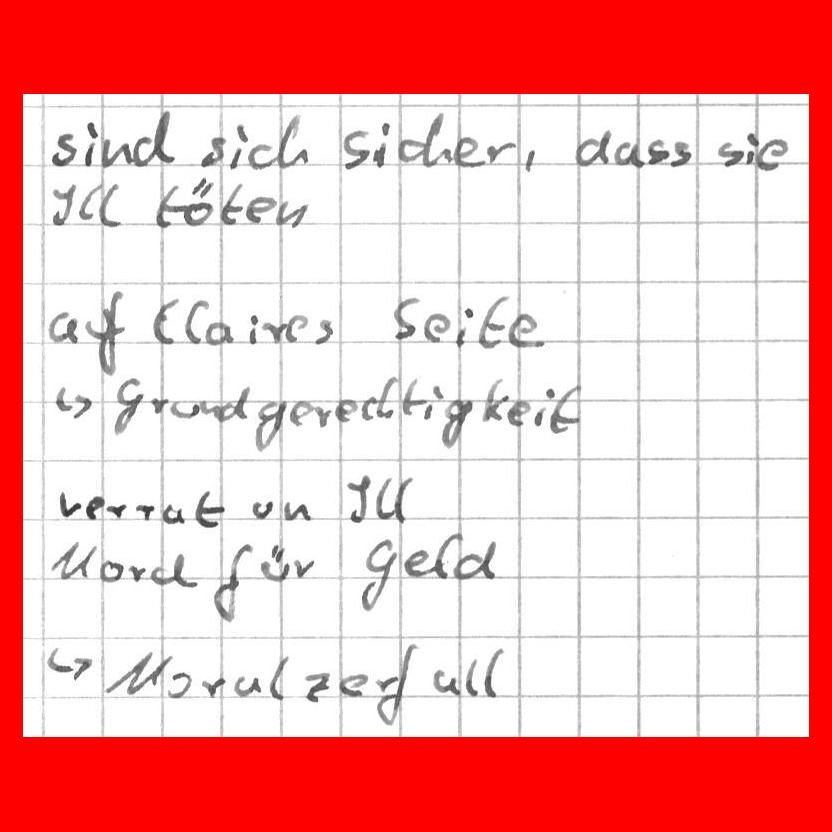 sind sich sicher, dass sie
Ill töten
auf Claires Seite
↳ Grundgerechtigkeit
verrat an Ill
Mord für Geld
↳ Moralzerfall